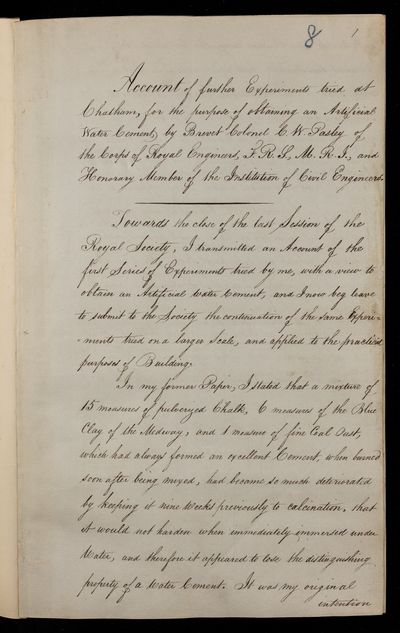 8 1
Account of further Experiments tried at
Chatham, for the purpose of obtaining an Artificial
Water Cement, by Brevet Colonel C. W. Pasley of
the Corps of Royal Engineers, F. R. S., M. R. I., and
Honorary Member of the Institution of Civil Engineers.
Towards the close of the last Session of the
Royal Society, I transmitted an Account of the
first Series of Experiments tried by me, with a view to
obtain an Artificial Water Cement, and I now beg leave
to submit to the Society the continuation of the same Experi=
=ments tried on a larger Scale, and applied to the practical
purposes of Building.
In my former Paper, I stated that a mixture of
15 measures of pulverized Chalk, 6 measures of the Blue
Clay of the Medway, and 1 measure of fine Coal Dust,
which had always formed an excellent Cement, when burned
soon after being mixed, had become so much deteriorated
by keeping it nine Weeks previously to calcination, that
it would not harden when immediately immersed under
Water, and therefore it appeared to lose the distinguishing
property of a Water Cement. It was my original
intention